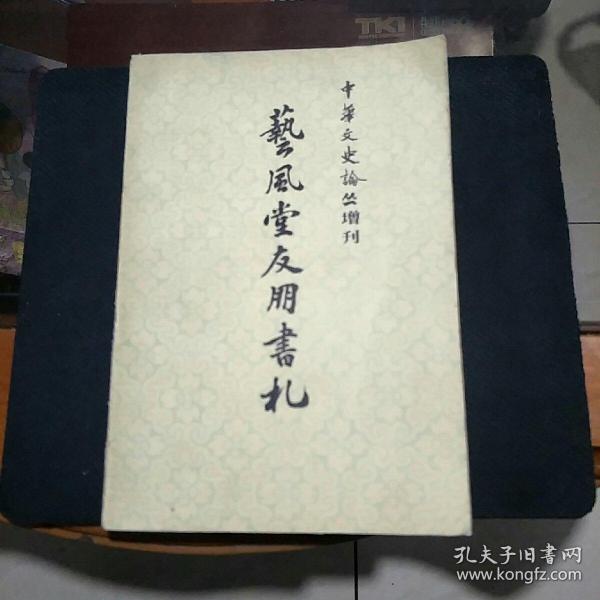 中華文史論丛增刊
藝風堂友朋書札
TKI
孔夫子旧书网
www.kongfz.com